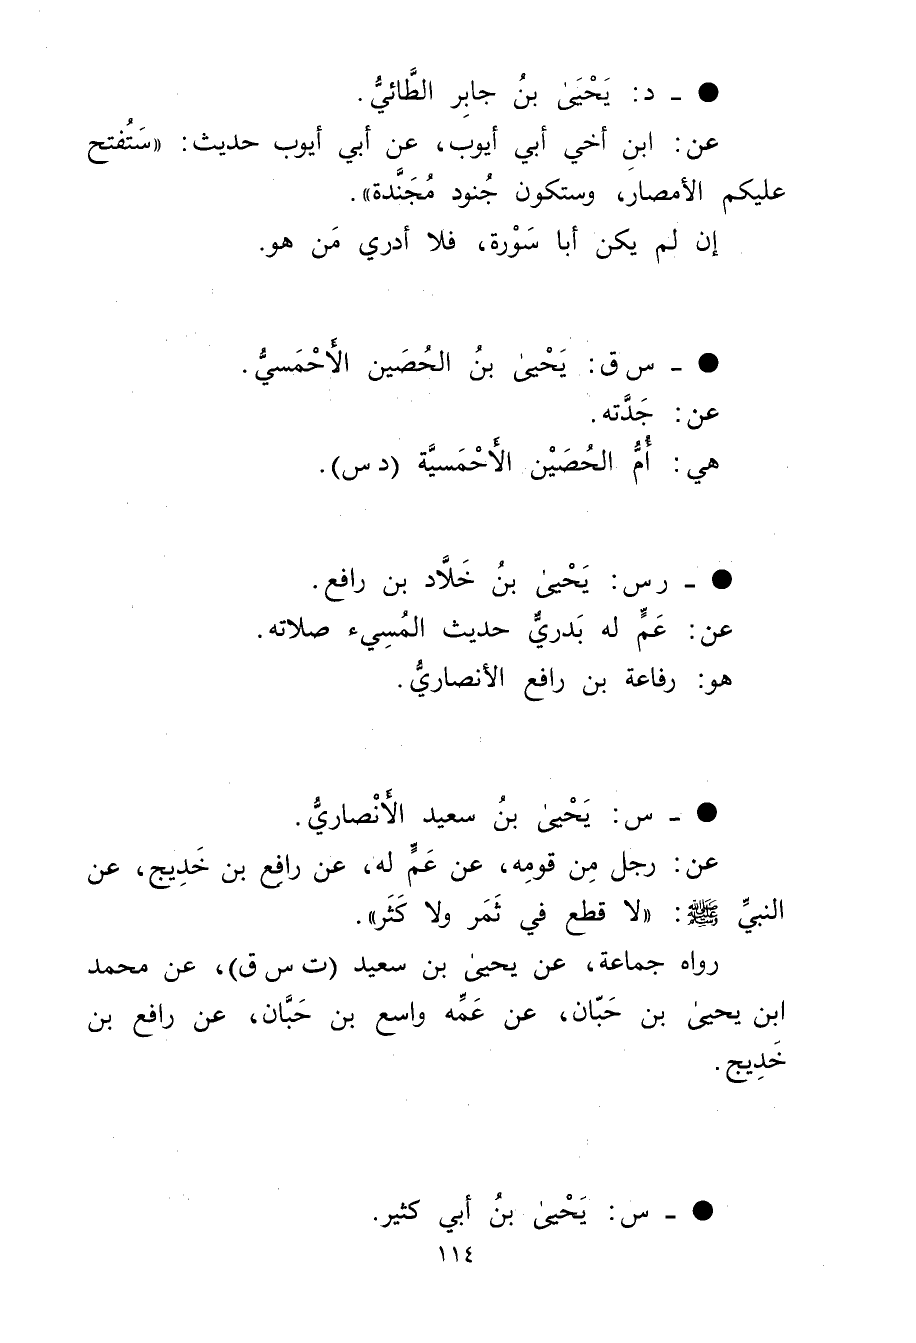 ● ـ د: يَحْيَىٰ بنُ جابِر الطَّائيُّ.
عن: ابنِ أخي أبي أيوب، عن أبي أيوب حديث: «سَتُفتح
عليكم الأمصار، وستكون جُنود مُجَنَّدة».
إن لم يكن أبا سَوْرة، فلا أدري مَن هو.
● ـ س ق: يَحْيىٰ بنُ الحُصَين الأَحْمَسيُّ.
عن: جَدَّته.
هي: أُمُّ الحُصَيْن الأَحْمَسيَّة (د س).
● ـ ر س: يَحْيىٰ بنُ خَلَّاد بن رافع.
عن: عَمٍّ له بَدريٌّ حديث المُسِيء صلاته.
هو: رفاعة بن رافع الأنصاريُّ.
● ـ س: يَحْيىٰ بنُ سعيد الأَنْصاريُّ.
عن: رجل مِن قومِه، عن عَمٍّ له، عن رافِع بن خَدِيج، عن
النبيِّ ﷺ: «لا قطع في ثَمَر ولا كَثَر».
رواه جماعة، عن يحيىٰ بن سعيد (ت س ق)، عن محمد
ابن يحيىٰ بن حَبّان، عن عَمِّه واسع بن حَبَّان، عن رافع بن
خَدِيج.
● ـ س: يَحْيىٰ بنُ أبي كثير.
١١٤